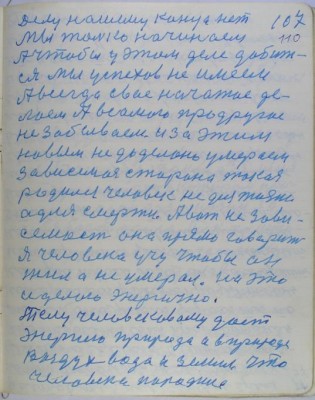 Делу нашему конца нет 107
мы только начинаем 110
А чтобы у этом деле добит-
ся мы успехов не имеем
А всегда свое начатое де-
лаем А в самого про другое
не забываем и за этим
новым не доделано умераем
Зависемая сторона такая
родился человек не для жизни
а для смерти. А вот не зави-
семость она прямо говарит
я человека учу чтобы он
жил а не умерал. На это
и делаю энергично.
Телу человеческому дает
энергию природа а в природе
воздух вода и земля что
человека породние